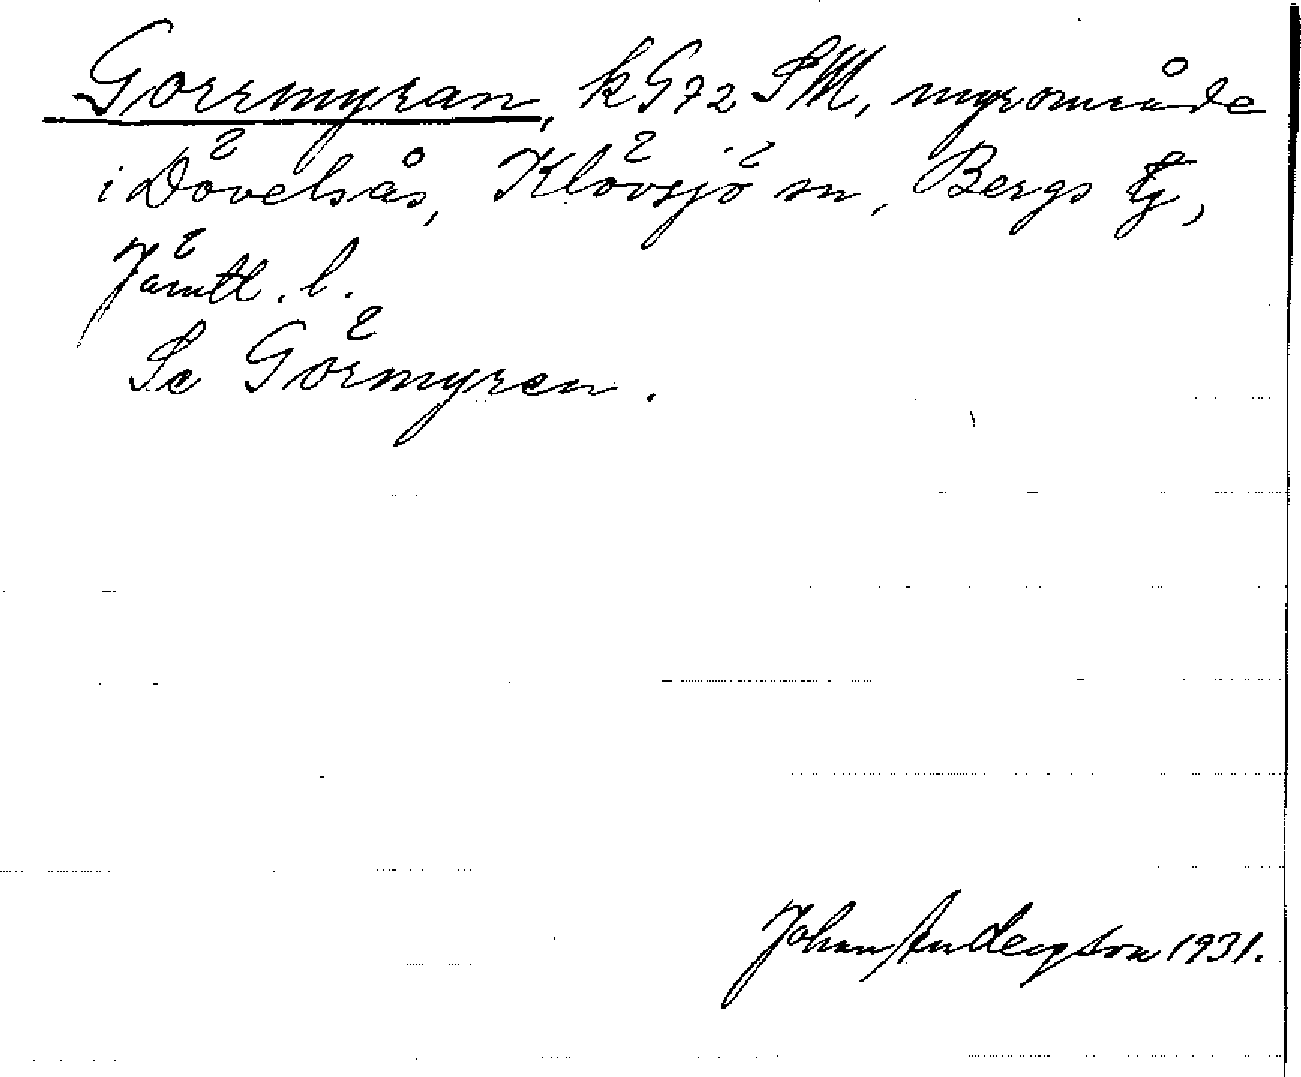 Gorrmyran, kG72 SM, myrområde
i Dövelsås, Klövsjö sn, Bergs tg,
Jämtl. l.
Se Görmyren.
Johan Andersson 1931.